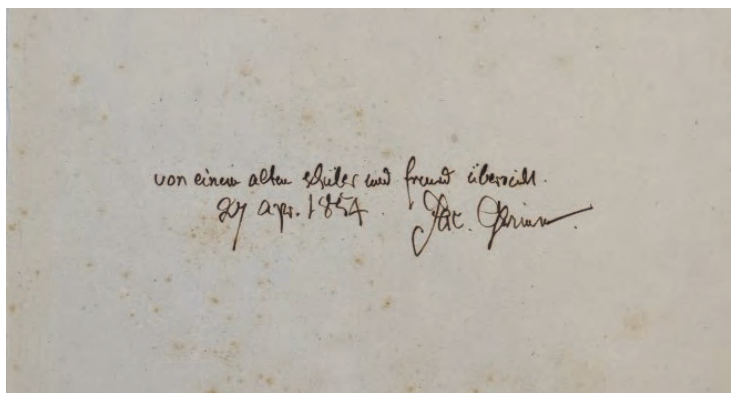 von einem alten schüler und freund übersendet.
27 apr. 1854. Jac. Grimm